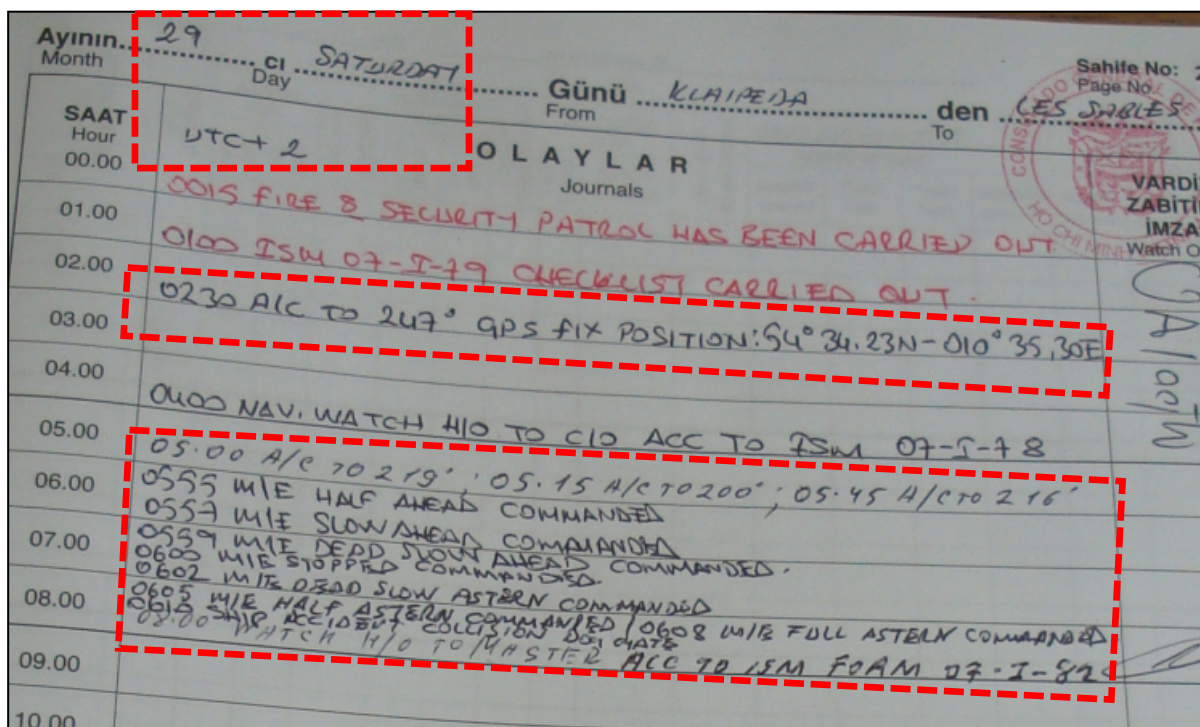 Ayının 29 cı SATURDAY Günü KLAIPEDA den LES SABLES
Month Day From To
Sahife No:
Page No
SAAT
Hour
UTC+ 2
OLAYLAR
Journals
VARDİ
ZABİTİ
İMZA
Watch O
HO CHI MINH
00.00
0015 FIRE & SECURITY PATROL HAS BEEN CARRIED OUT.
01.00
0100 ISM 07-I-79 CHECKLIST CARRIED OUT.
02.00
0230 A/C TO 247° GPS FIX POSITION: 54° 34.23N-010° 35,30E
03.00
04.00
0400 NAV. WATCH H/O TO C/O ACC TO ISM 07-I-78
05.00
05.00 A/C TO 219° ; 05.15 A/C TO 200° ; 05.45 A/C TO 216°
06.00
0555 M/E HALF AHEAD COMMANDED
0557 M/E SLOW AHEAD COMMANDED
07.00
0559 M/E DEAD SLOW AHEAD COMMANDED.
0600 M/E STOPPED COMMANDED.
0602 M/E DEAD SLOW ASTERN COMMANDED
08.00
0605 M/E HALF ASTERN COMMANDED / 0608 M/E FULL ASTERN COMMANDED
0610 SHIP ACCIDENT COLLISION GATE
08.00 WATCH H/O TO MASTER ACC TO ISM FOAM 07-I-82
09.00
10.00